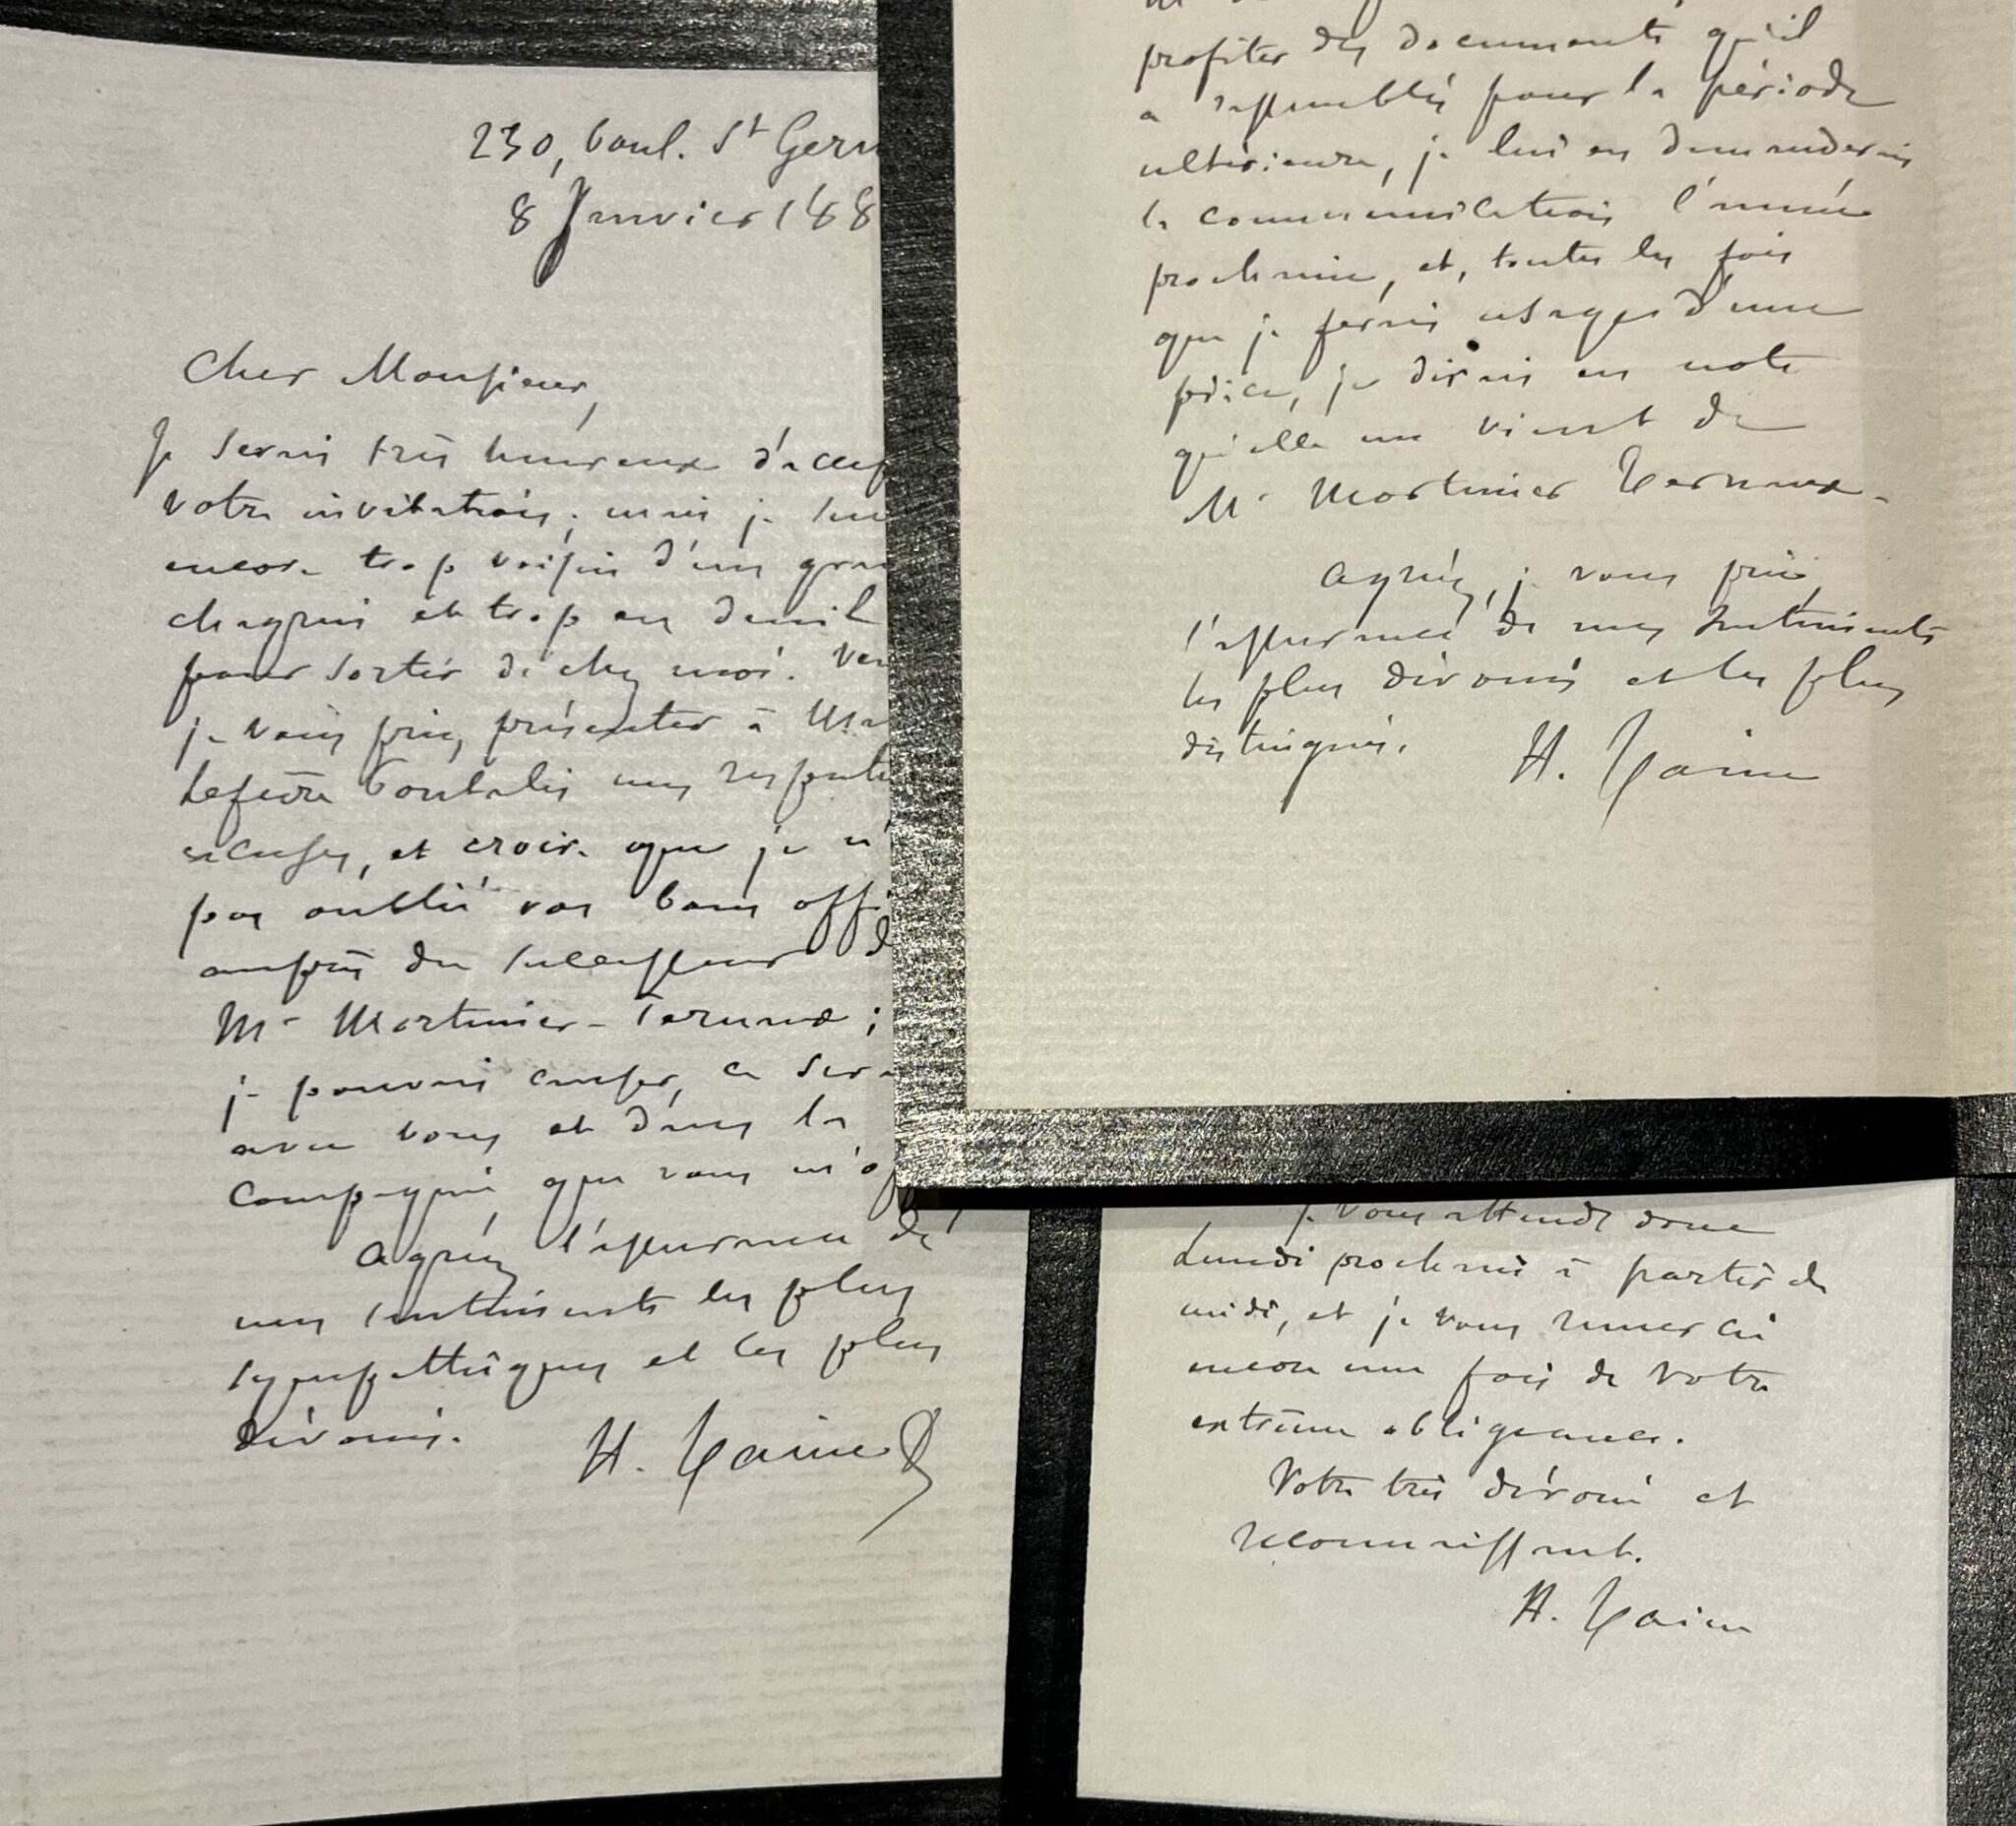 230, boul. St Germ
8 Janvier 188
Cher Monsieur,
Je serais très heureux d'accep
votre invitation ; mais je sui
encore trop voisin d'un gran
chagrin et trop en deuil
pour sortir de chez moi. Veu
je vous prie, présenter à Ma
Lefèvre Pontalis mes respectu
excuses, et croire que je n'
pas oublié vos bons offi
auprès du successeur d
Mr Mortimer-Ternaux ;
je pouvais causer, ce sera
avec vous et dans la
compagnie que vous m'of
Agréez l'assurance de
mes sentiments les plus
sympathiques et les plus
dévoués.
H. Taine
profiter des documents qu'il
a rassemblés pour la période
ultérieure, je lui en demanderais
la communication l'année
prochaine, et, toutes les fois
que je ferais usage d'une
pièce, je dirais en note
qu'elle me vient de
Mr Mortimer Ternaux.
Agréez, je vous prie,
l'assurance de mes sentiments
les plus dévoués et les plus
distingués.
H. Taine
Je vous attends donc
Lundi prochain à partir de
midi, et je vous remercie
encore une fois de votre
extrême obligeance.
Votre très dévoué et
reconnaissant.
H. Taine